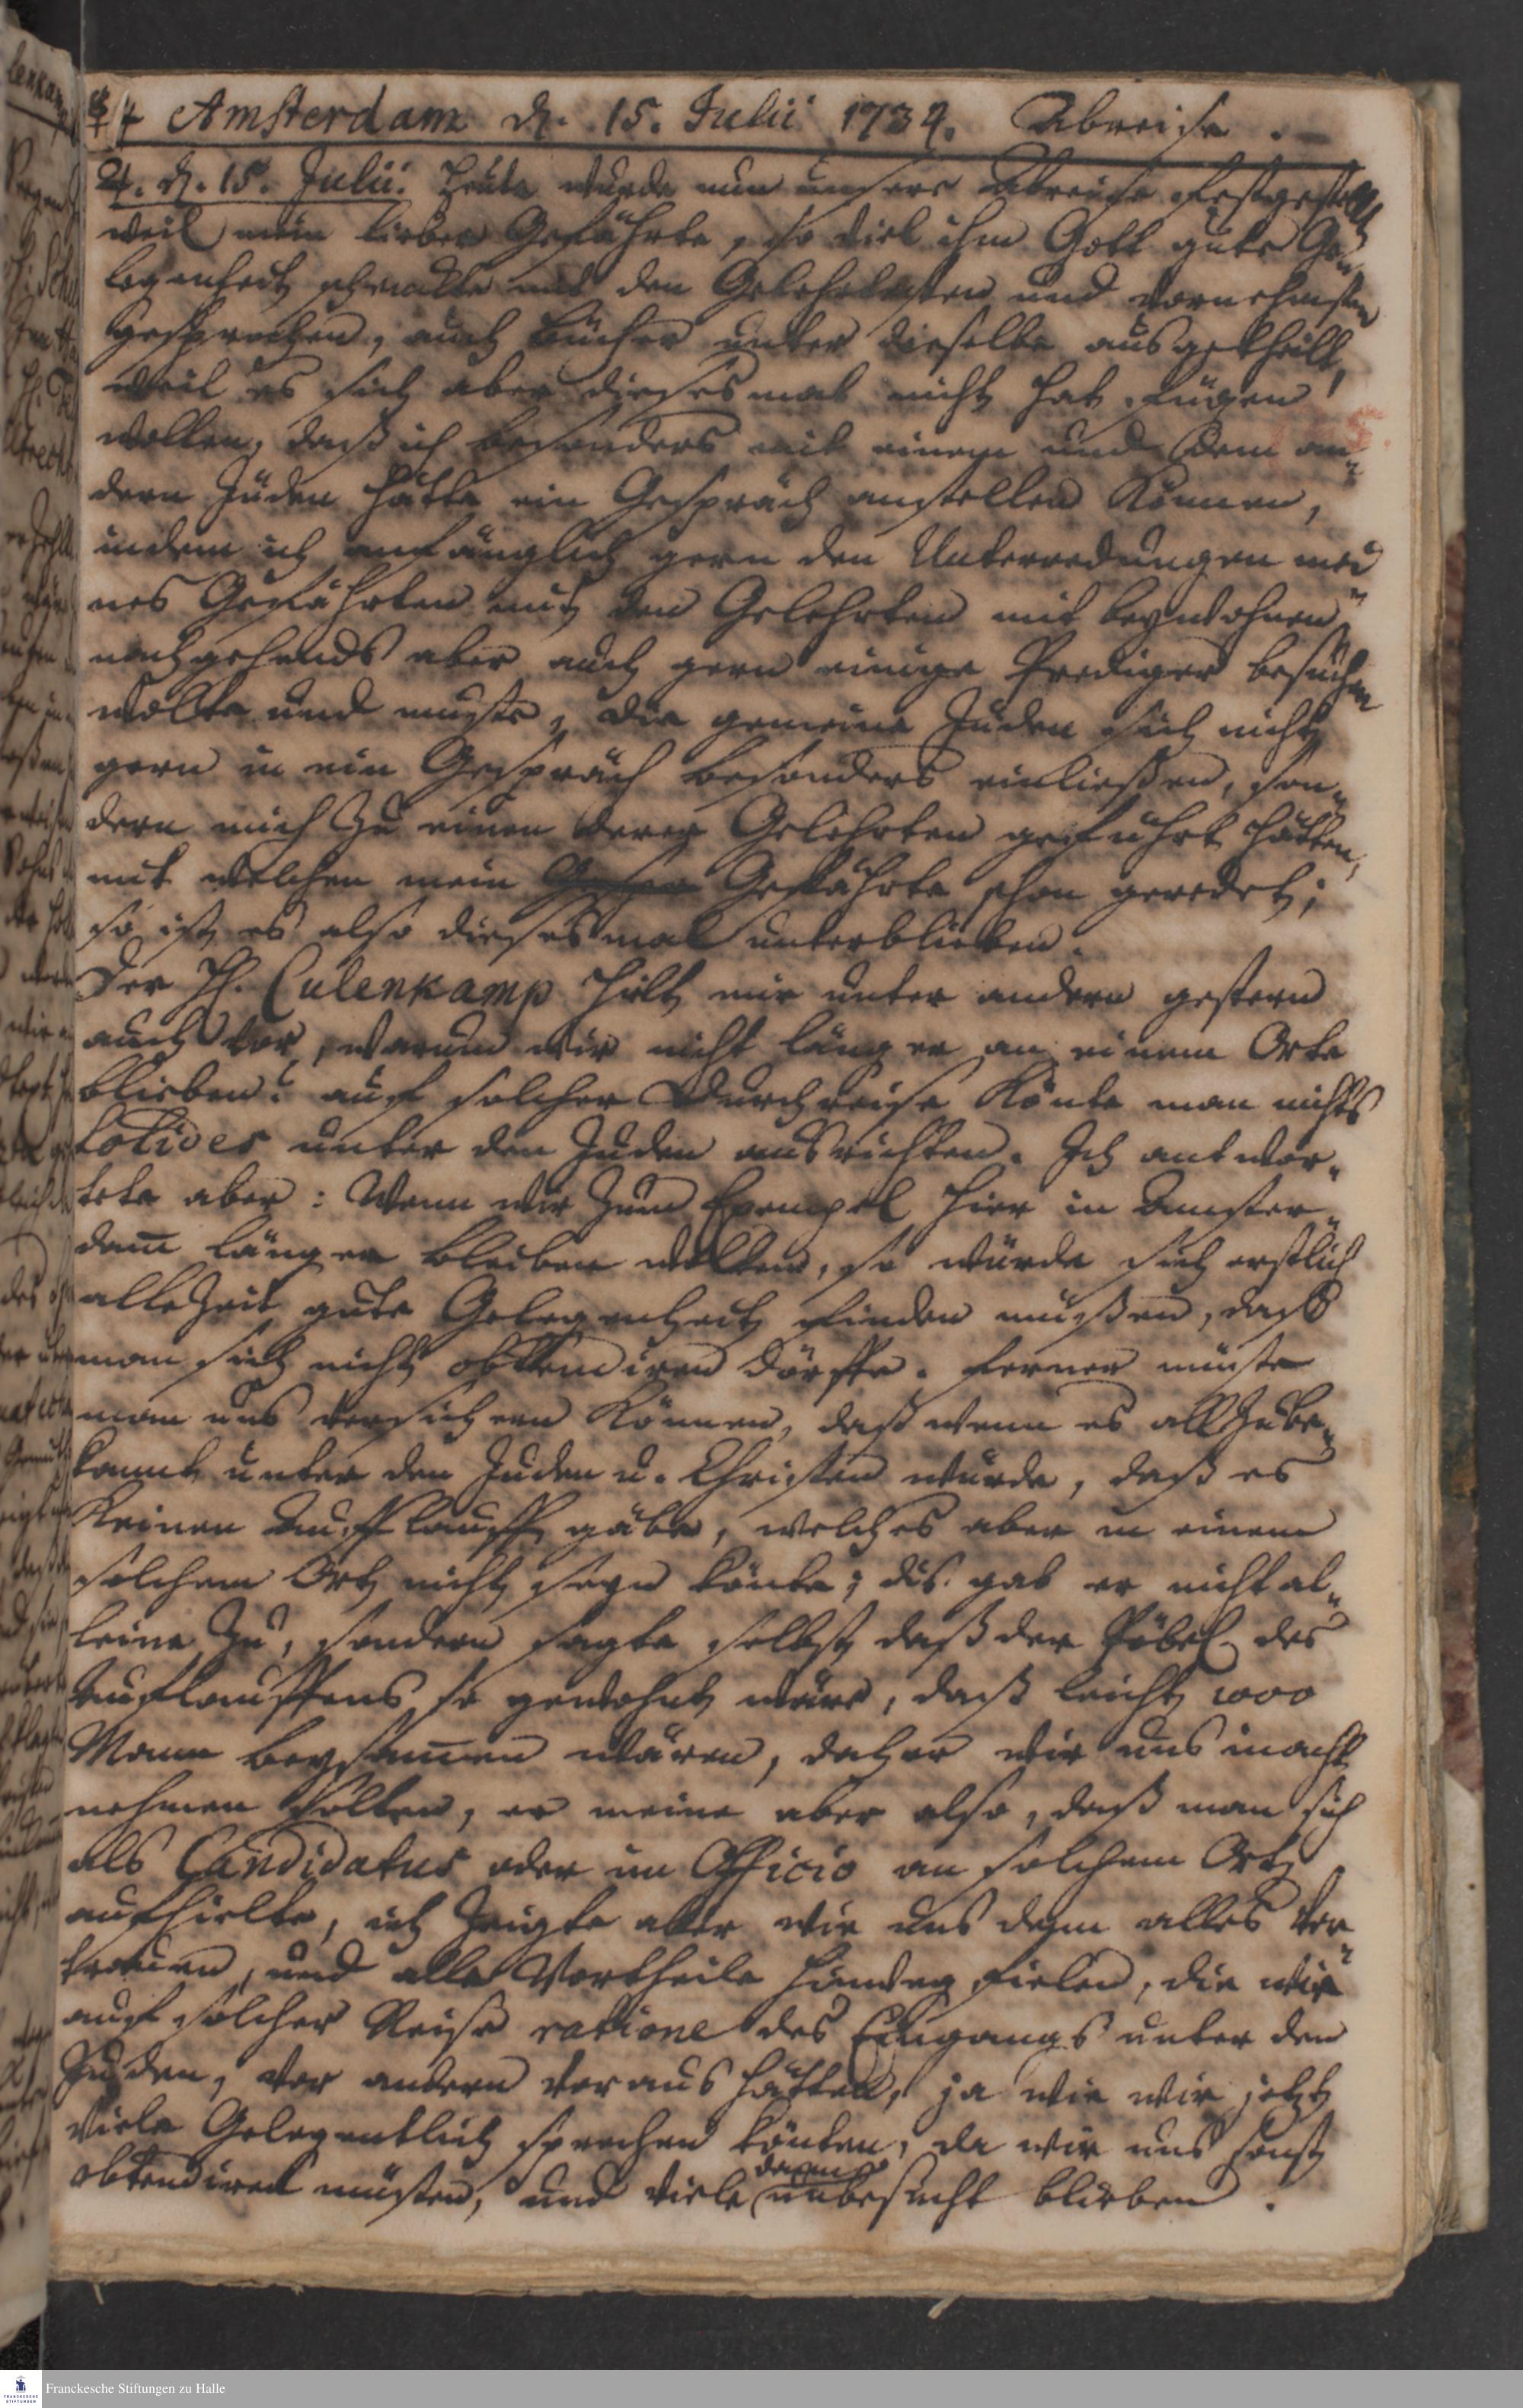 Amsterdam d. 15. Julii 1734. Abreise.
♃. d. 15. Julii. Heute wurde nun unsere Abreise festgestellt
weil mein lieber Gefährte, so viel ihm Gott gute Ge-
legenheit schenckte mit den Gelehrtesten und vornehmsten
gesprochen, auch Bücher unter dieselbe ausgetheilt,
weil es sich aber dieses mal nicht hat fügen
wollen, daß ich besonders mit einem und dem an-
dern Juden hätte ein Gespräch anstellen können,
indem ich anfänglich gern den Unterredungen mei-
nes Gefährten mit den Gelehrten mit beywohnen
nachgehends aber auch gern einige Prediger besuchen
wolte und muste, die gemeine Juden sich nicht
gern in ein Gespräch besonders einließen, son-
dern mich zu einen derer Gelehrten geführt hätten,
mit welchen mein Gefährte schon geredet;
so ist es also dieses mal unterblieben.
Der H. Culenkamp hielt mir unter andern gestern
auch vor, warum wir nicht länger an einem Orte
blieben? auf solcher Durchreise könte man nichts
solides unter den Juden ausrichten. Ich antwor-
tete aber: Wenn wir zum Exempel hier in Amster-
dam länger bleiben wolten, so würde sich erstlich
allezeit gute Gelegenheit finden müßen, daß
man sich nicht obtendiren dörffe. ferner müste
man uns versichern können, daß wenn es allzube-
kannt unter den Juden u. Christen würde, daß es
keinen Aufflauff gäbe, welches aber in einem
solchem Ort nicht seyn könte; dis gab er nicht al-
leine zu, sondern sagte selbst daß der Pöbel des
Auflauffens so gewohnt wäre, daß leicht 1000
Mann beysammen wären, daher wir uns inacht
nehmen solten, er meine aber also, daß man sich
als Candidatus oder im Officio an solchem Ort
aufhielte, ich zeigte aber wie uns denn alles Ver-
trauen, und alle Vortheile hinweg fielen, die wir
auf solcher Reise ratione des Eingangs unter den
Juden, vor andern voraus hätten, ja wie wir jetzt
viele Gelegentlich sprechen könten, da wir uns sonst
obtendiren müsten, und viele unbesucht blieben.